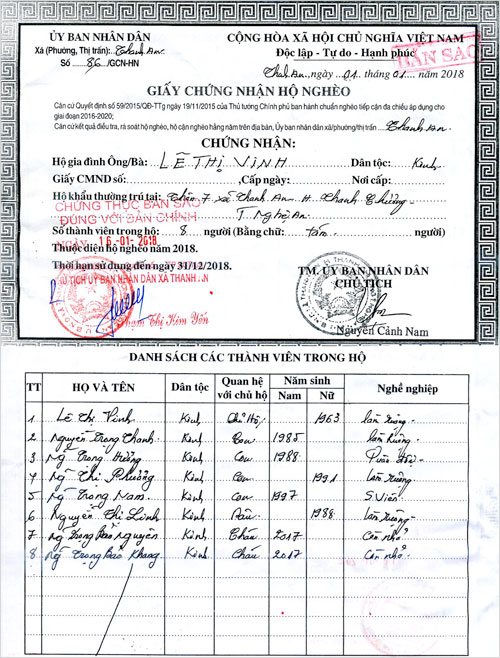 ỦY BAN NHÂN DÂN
Xã (Phường, Thị trấn): Thanh An
Số 86/GCN-HN
CỘNG HÒA XÃ HỘI CHỦ NGHĨA VIỆT NAM
Độc lập - Tự do - Hạnh phúc
BẢN SAO
Thanh An, ngày 01 tháng 01 năm 2018
GIẤY CHỨNG NHẬN HỘ NGHÈO
Căn cứ Quyết định số 59/2015/QĐ-TTg ngày 19/11/2015 của Thủ tướng Chính phủ ban hành chuẩn nghèo tiếp cận đa chiều áp dụng cho
giai đoạn 2016-2020;
Căn cứ kết quả điều tra, rà soát hộ nghèo, hộ cận nghèo hằng năm trên địa bàn, Ủy ban nhân dân xã/phường/thị trấn Thanh An
CHỨNG NHẬN:
Hộ gia đình Ông/Bà: LÊ THỊ VINH Dân tộc: Kinh
Giấy CMND số: Cấp ngày: Nơi cấp:
Hộ khẩu thường trú tại: Thôn 7 xã Thanh An - H. Thanh Chương -
T. Nghệ An
CHỨNG THỰC BẢN SAO
ĐÚNG VỚI BẢN CHÍNH
Số thành viên trong hộ: 8 người (Bằng chữ: tám người)
NGÀY 16-01-2018
Thuộc diện hộ nghèo năm 2018.
Thời hạn sử dụng đến ngày 31/12/2018.
CHỦ TỊCH ỦY BAN NHÂN DÂN XÃ THANH AN
Phạm Thị Kim Yến
TM. ỦY BAN NHÂN DÂN
CHỦ TỊCH
Nguyễn Cảnh Nam
DANH SÁCH CÁC THÀNH VIÊN TRONG HỘ
TT HỌ VÀ TÊN Dân tộc Quan hệ với chủ hộ Năm sinh Nam Nữ Nghề nghiệp
1 Lê Thị Vinh Kinh Chủ Hộ 1963 làm ruộng -
2 Nguyễn Trọng Thanh Kinh Con 1985 làm ruộng -
3 Ng Trọng Hường Kinh Con 1988
4 Ng Thị Phương Kinh Con 1991 làm ruộng -
5 Ng Trọng Nam. Kinh Con 1997 S. Viên
6 Nguyễn Thị Linh Kinh Dâu 1988 làm ruộng -
7 Ng Trọng Bảo Nguyên Kinh Cháu 2017 Còn nhỏ -
8 Ng Trọng Bảo Khang Kinh Cháu 2017 còn nhỏ -